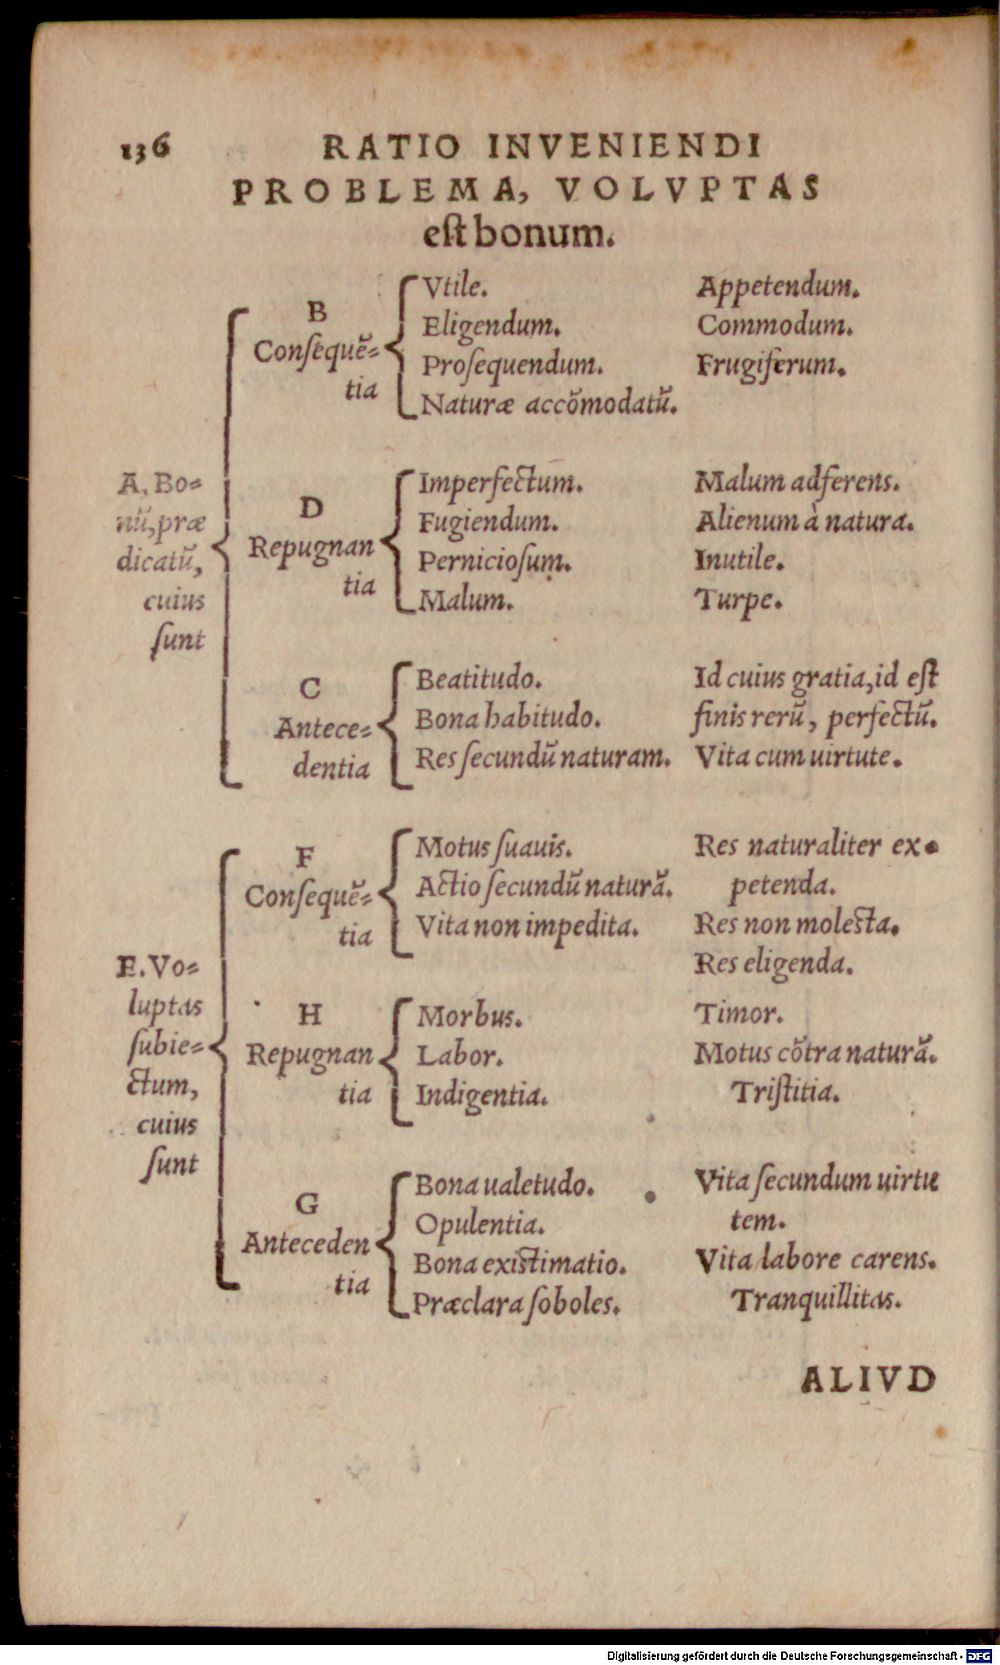 136 RATIO INVENIENDI
PROBLEMA, VOLVPTAS
eſt bonum.
A, Bo-
nũ, præ
dicatũ,
cuius
ſunt
B
Conſequẽ-
tia
Vtile. Appetendum.
Eligendum. Commodum.
Proſequendum. Frugiferum.
Naturæ accõmodatũ.
D
Repugnan
tia
Imperfectum. Malum adferens.
Fugiendum. Alienum à natura.
Pernicioſum. Inutile.
Malum. Turpe.
C
Antece-
dentia
Beatitudo. Id cuius gratia, id eſt
Bona habitudo. finis rerũ, perfectũ.
Res ſecundũ naturam. Vita cum uirtute.
E. Vo-
luptas
ſubie-
ctum,
cuius
ſunt
F
Conſequẽ-
tia
Motus ſuauis. Res naturaliter ex-
Actio ſecundũ naturã. petenda.
Vita non impedita. Res non moleſta.
Res eligenda.
H
Repugnan
tia
Morbus. Timor.
Labor. Motus cõtra naturã.
Indigentia. Triſtitia.
G
Anteceden
tia
Bona ualetudo. Vita ſecundum uirtu
Opulentia. tem.
Bona exiſtimatio. Vita labore carens.
Præclara ſoboles. Tranquillitas.
ALIVD
Digitalisierung gefördert durch die Deutsche Forschungsgemeinschaft - DFG